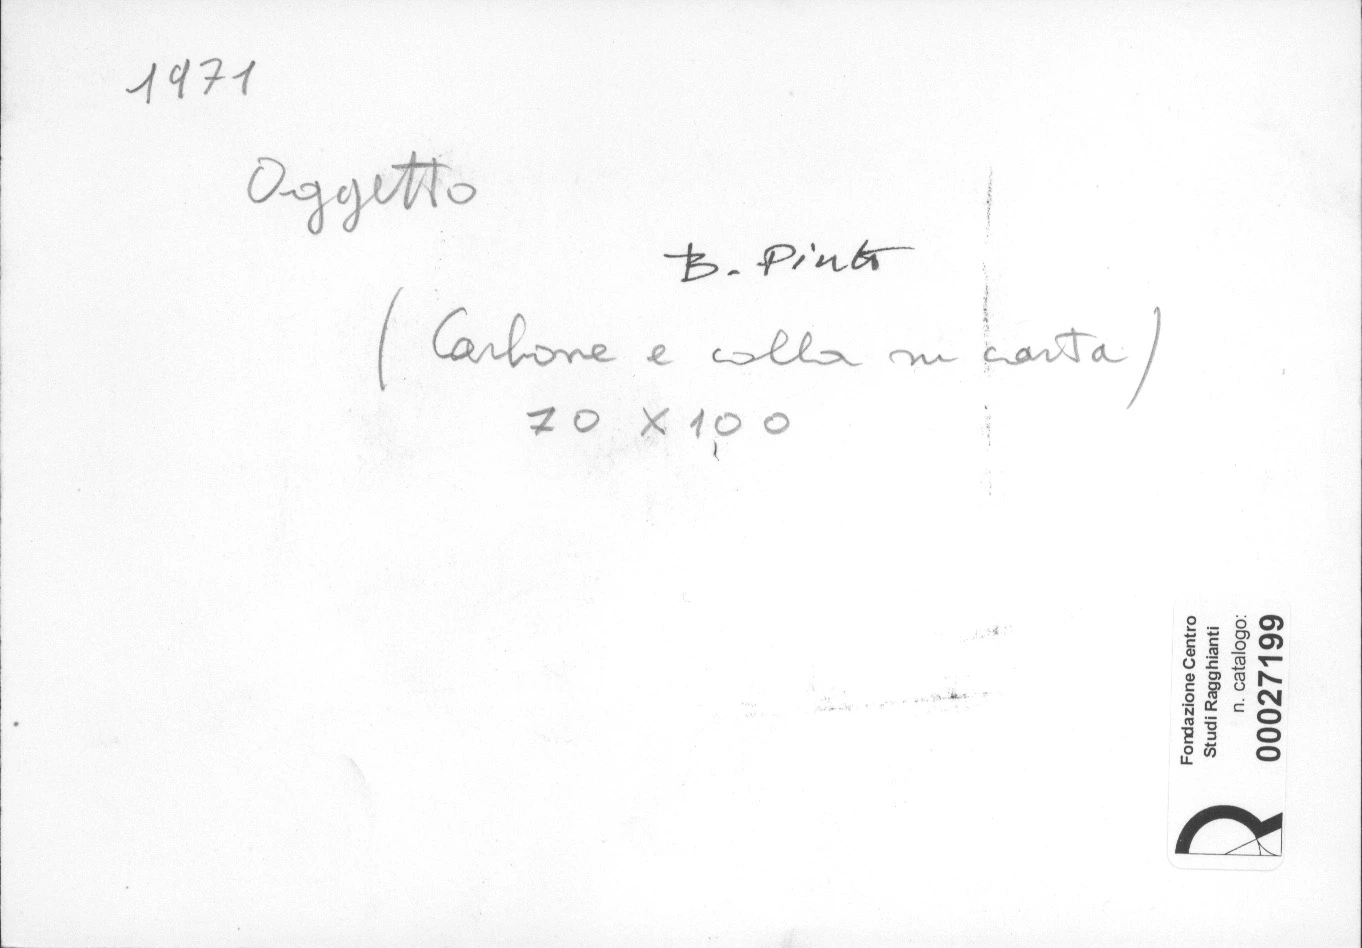 1971
Oggetto
B. Pinto
(Carbone e colla su carta)
70 x 100
Fondazione Centro
Studi Ragghianti
n. catalogo:
00027199